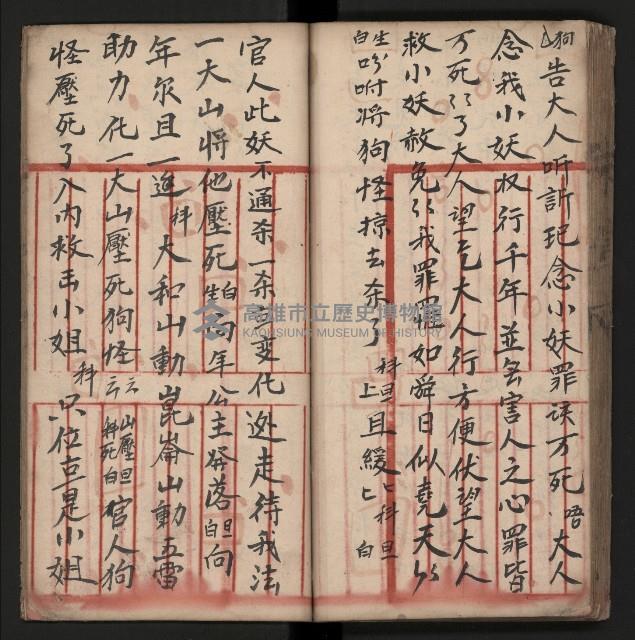 狗凵告大人听訴圯念小妖罪誤万死唔大人
念我小妖权行千年並名害人之心罪皆
万死了大人望乞大人行方便伏望大人
救小妖赦免我罪如舜日似堯天
生白吩咐将狗怪掠去杀了科旦上且緩科旦白
官人此妖不通杀一杀変化逊走待我法
一大山将他壓死生白向年公主發落旦白向
年尔且一進科大和山動崑崙山動五雷
助力化一大山壓死狗怪云云山壓死科旦白官人狗
怪壓死了入內救击小姐科只位言是小姐
高雄市立歷史博物館
KAOHSIUNG MUSEUM OF HISTORY